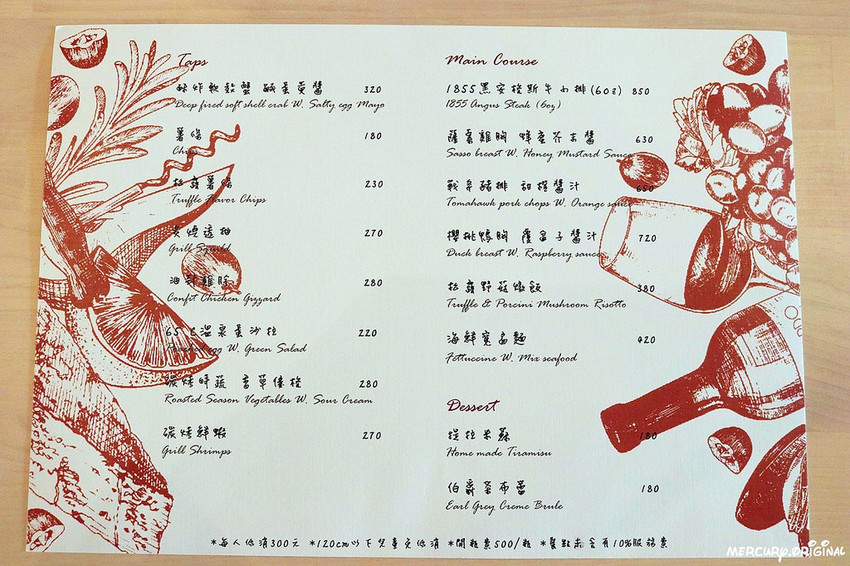 Taps
酥炸軟殼蟹 鹹蛋黃醬 320
Deep fired soft shell crab W. Salty egg Mayo
薯條 180
Chips
松露薯條 230
Truffle Flavor Chips
炙燒透抽 270
Grill Squild
油封雞胗 280
Confit Chicken Gizzard
65℃溫泉蛋沙拉 220
Egg W. Green Salad
碳烤時蔬 香草優格 280
Roasted Season Vegetables W. Sour Cream
碳烤鮮蝦 270
Grill Shrimps
Main Course
1855黑安格斯牛小排(6oz) 850
1855 Angus Steak (6oz)
薩索雞胸 蜂蜜芥末醬 630
Sasso breast W. Honey Mustard Sauce
戰斧豬排 甜橙醬汁 650
Tomahawk pork chops W. Orange sauce
櫻桃鴨胸 覆盆子醬汁 720
Duck breast W. Raspberry sauce
松露野菇燉飯 380
Truffle & Porcini Mushroom Risotto
海鮮寬扁麵 420
Fettuccine W. Mix seafood
Dessert
提拉米蘇 180
Home made Tiramisu
伯爵茶布蕾 180
Earl Grey Creme Brule
*每人低消300元 *120cm以下兒童免低消 *開瓶費500/瓶 *餐點未含有10%服務費
MERCURY.ORIGINAL